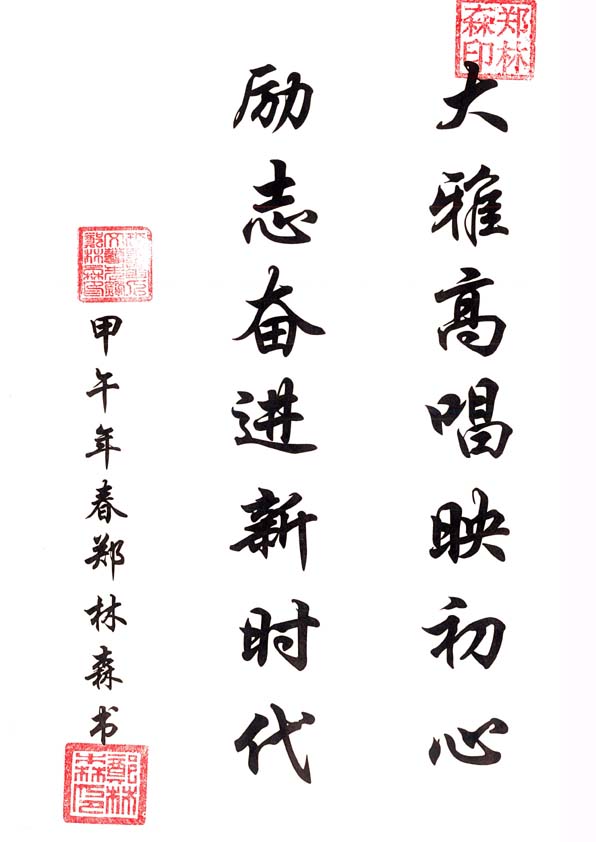 郑林森印
大雅高唱映初心
励志奋进新时代
甲午年春郑林森书
鄭林森印